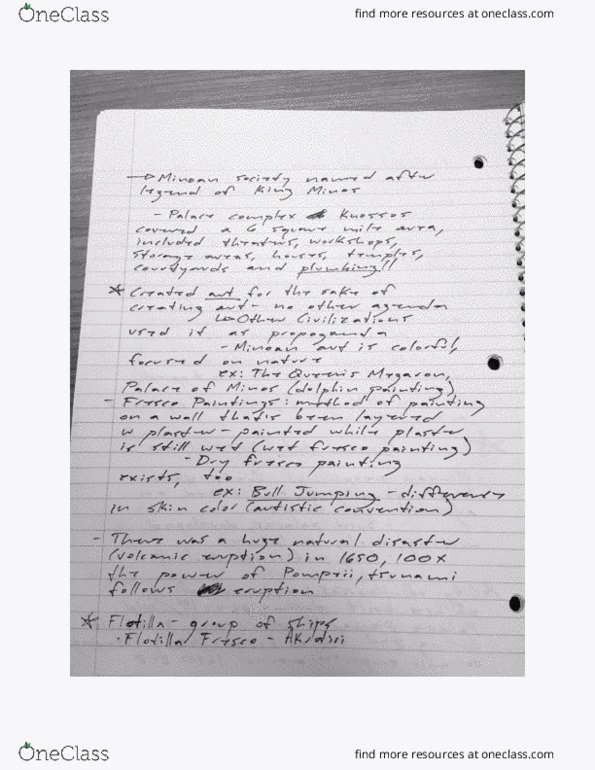 OneClass
find more resources at oneclass.com
→ Minoan society named after
legend of King Minos
- Palace complex Knossos
covered a 6 square mile area,
included theaters, workshops,
storage areas, houses, temples,
courtyards and plumbing!!
* Created art for the sake of
creating art - no other agenda
↳ Other Civilizations
used it as propoganda
- Minoan art is colorful,
focused on nature
ex: The Queen's Megaron,
Palace of Minos (dolphin painting)
- Fresco Paintings: method of painting
on a wall that's been layered
w plaster - painted while plaster
is still wet (wet fresco painting)
- Dry fresco painting
exists, too
ex: Bull Jumping - differences
in skin color (artistic convention)
- There was a huge natural disaster
(volcanic eruption) in 1650, 100x
the power of Pompeii, tsunami
follows eruption
* Flotilla - group of ships
· Flotilla Fresco - Akrotiri
OneClass
find more resources at oneclass.com